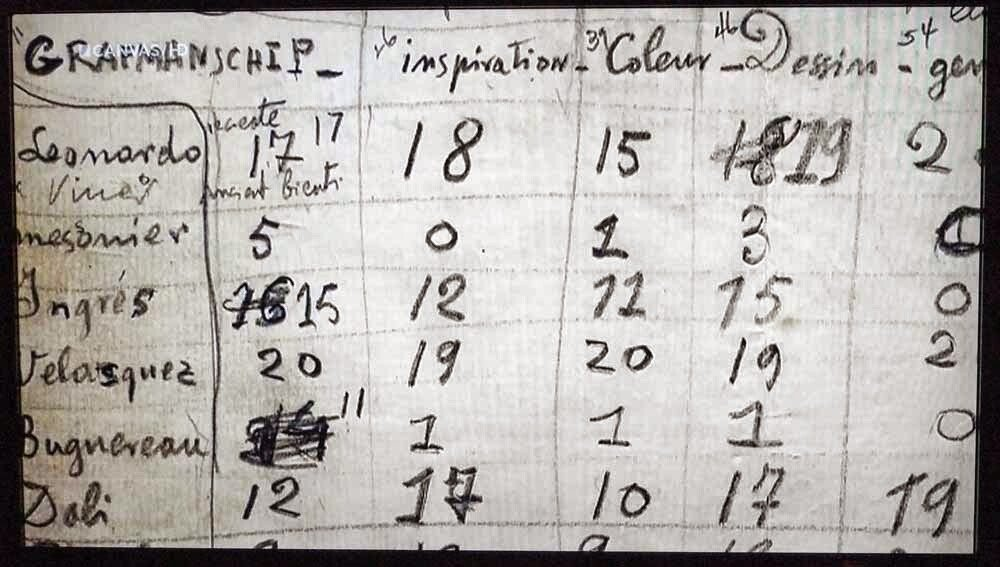 GRAFMANSCHIP - inspiration - Coleur - Dessin - gen
Leonardo 17 17 18 15 18 19 2
Vinci
mesonier 5 0 1 3 0
Ingrés 16 15 12 11 15 0
Velasquez 20 19 20 19 2
Buguereau 11 1 1 1 0
Dali 12 17 10 17 19